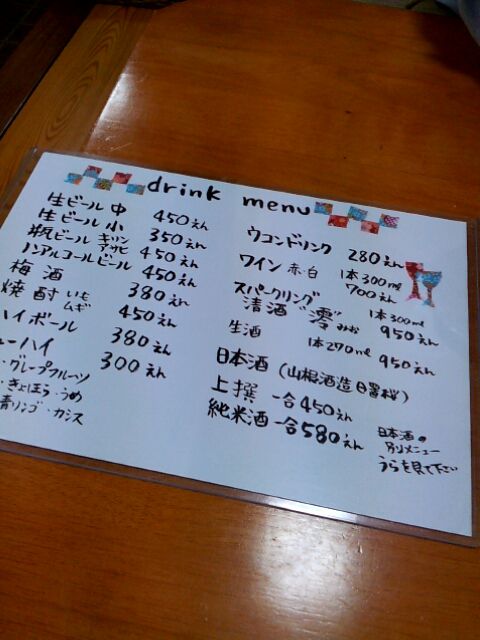 drink menu
生ビール 中 450えん
生ビール 小 350えん
瓶ビール キリン アサヒ 450えん
ノンアルコールビール 450えん
梅酒 380えん
焼酎 いも ムギ 450えん
イボール 380えん
ューハイ 300えん
・グレープフルーツ
・きょほう・うめ
青リンゴ・カシス
ウコンドリンク 280えん
ワイン 赤・白 1本300ml 700えん
スパークリング
清酒“澪”みお 1本300ml 950えん
生酒 1本270ml 950えん
日本酒 (山根酒造 日置桜)
上撰 一合450えん
純米酒 一合580えん
日本酒の
別メニュー
うらを見て下さい